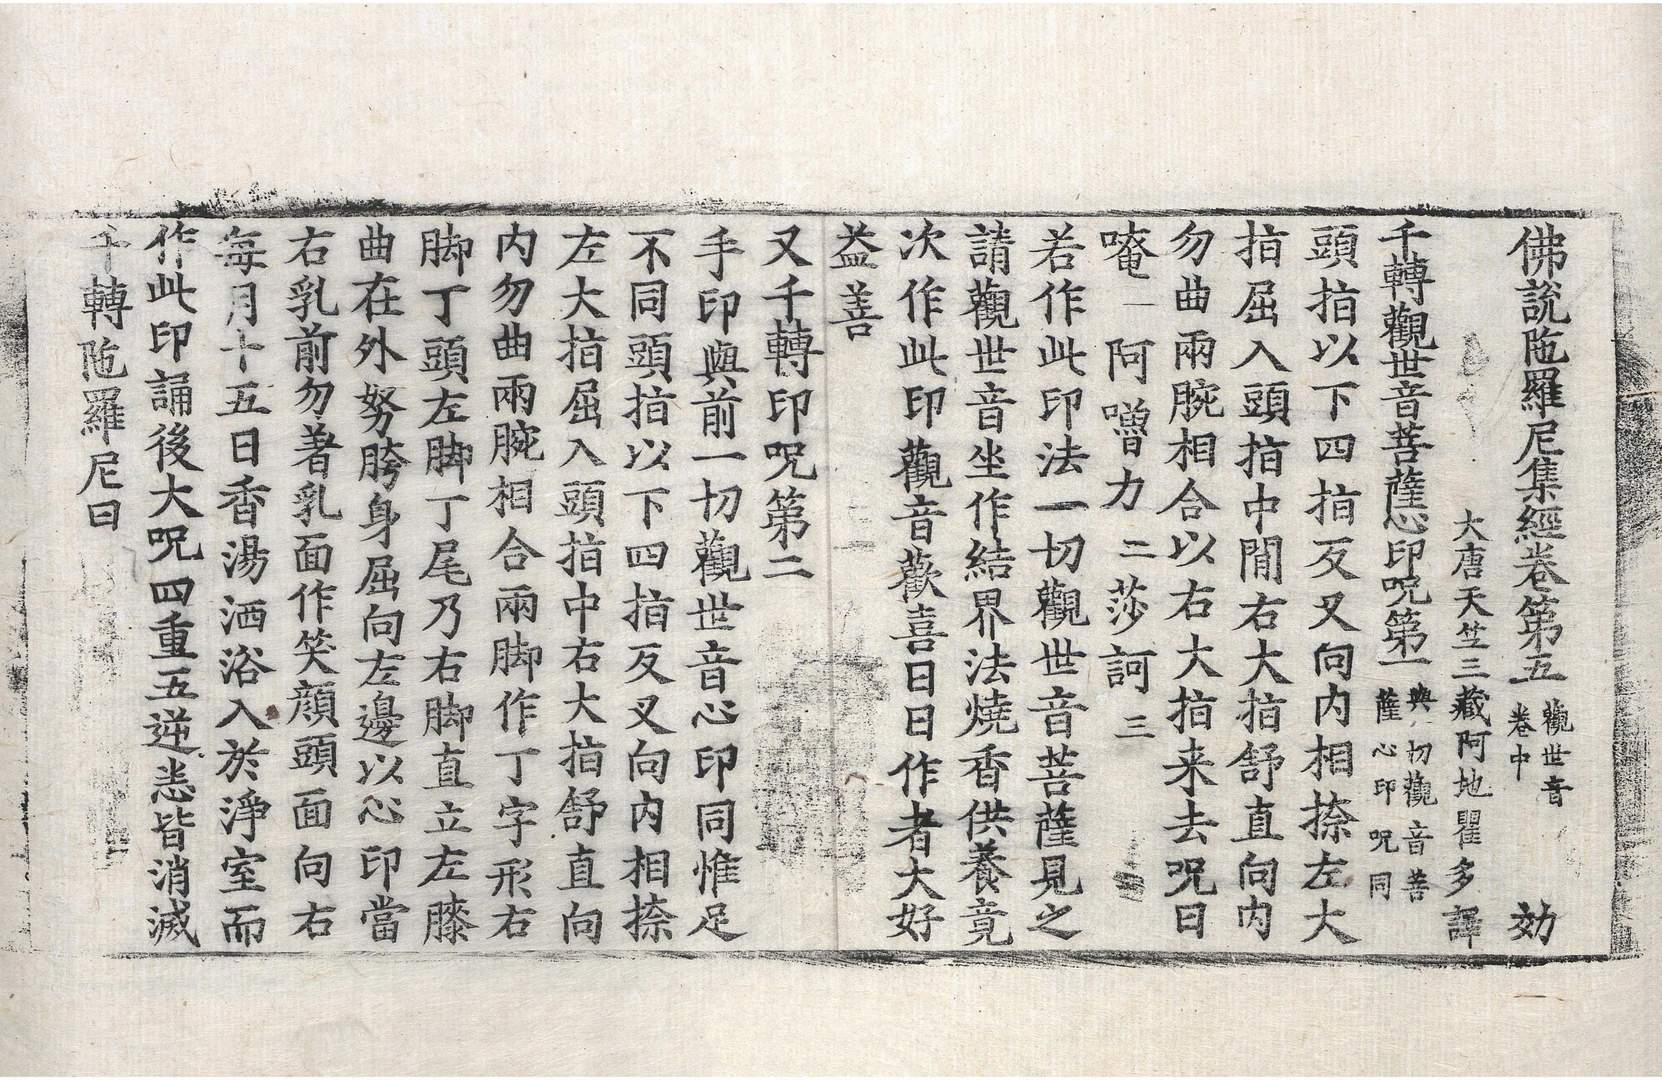 佛說陁羅尼集經卷第五 觀世音卷中 効
大唐天竺三藏阿地瞿多譯
千轉觀世音菩薩心印呪第一 與一切觀音菩薩心印呪同
頭指以下四指反叉向内相捺左大
指屈入頭指中閒右大指舒直向内
勿曲兩腕相合以右大指来去呪曰
唵 一 阿嚕力 二 莎訶 三
若作此印法一切觀世音菩薩見之
請觀世音坐作結界法燒香供養竟
次作此印觀音歡喜日日作者大好
益善
又千轉印呪第二
手印與前一切觀世音心印同惟足
不同頭指以下四指反叉向内相捺
左大指屈入頭指中右大指舒直向
内勿曲兩腕相合兩脚作丁字形右
脚丁頭左脚丁尾乃右脚直立左膝
曲在外努胯身屈向左邊以心印當
右乳前勿著乳面作笑顔頭面向右
每月十五日香湯洒浴入於淨室而
作此印誦後大呪四重五逆悉皆消滅
千轉陁羅尼曰